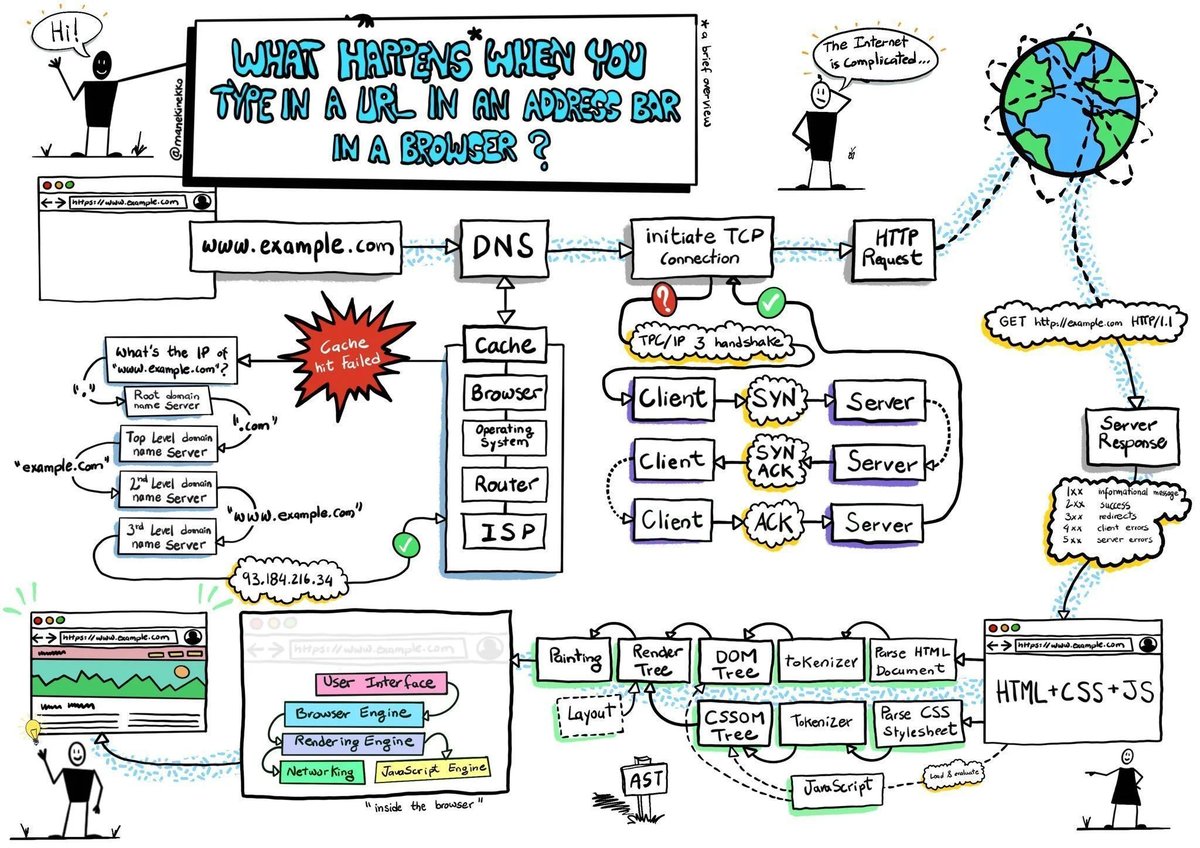 Hi!
@manekinekko
WHAT HAPPENS* WHEN YOU
TYPE IN A URL IN AN ADDRESS BAR
IN A BROWSER ?
*a brief overview
The Internet
is complicated...
https://www.example.com
www.example.com
DNS
initiate TCP
Connection
HTTP
Request
GET http://example.com HTTP/1.1
Server
Response
1xx informational message
2xx success
3xx redirects
4xx client errors
5xx server errors
Cache
hit failed
Cache
Browser
Operating
System
Router
ISP
What's the IP of
"www.example.com"?
"."
Root domain
name Server
".com"
Top Level domain
name Server
"example.com"
2nd Level domain
name Server
"www.example.com"
3rd Level domain
name Server
93.184.216.34
?
TPC/IP 3 handshake
Client
SYN
Server
Client
SYN
ACK
Server
Client
ACK
Server
https://www.example.com
HTML+CSS+JS
Parse HTML
Document
tokenizer
DOM
Tree
Render
Tree
Painting
Layout
Parse CSS
Stylesheet
Tokenizer
CSSOM
Tree
JavaScript
Load & evaluate
AST
https://www.example.com
User Interface
Browser Engine
Rendering Engine
Networking
JavaScript Engine
"inside the browser"
https://www.example.com